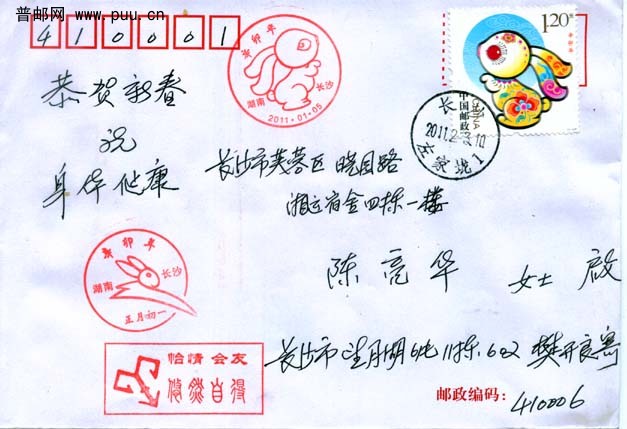 普邮网 www.puu.cn
410001
1.20元
辛卯年
中国邮政
CHINA
辛卯年
湖南 长沙
2011·01·05
长
2011.2.3.10
左家垅1
恭贺新春
祝
身体健康
长沙市芙蓉区晓园路
湘运宿舍四栋一楼
陈亮华 女士 启
辛卯年
湖南 长沙
正月初一
怡情会友
悠然自得
长沙市望月湖 11栋.602 樊开良寄
邮政编码:410006